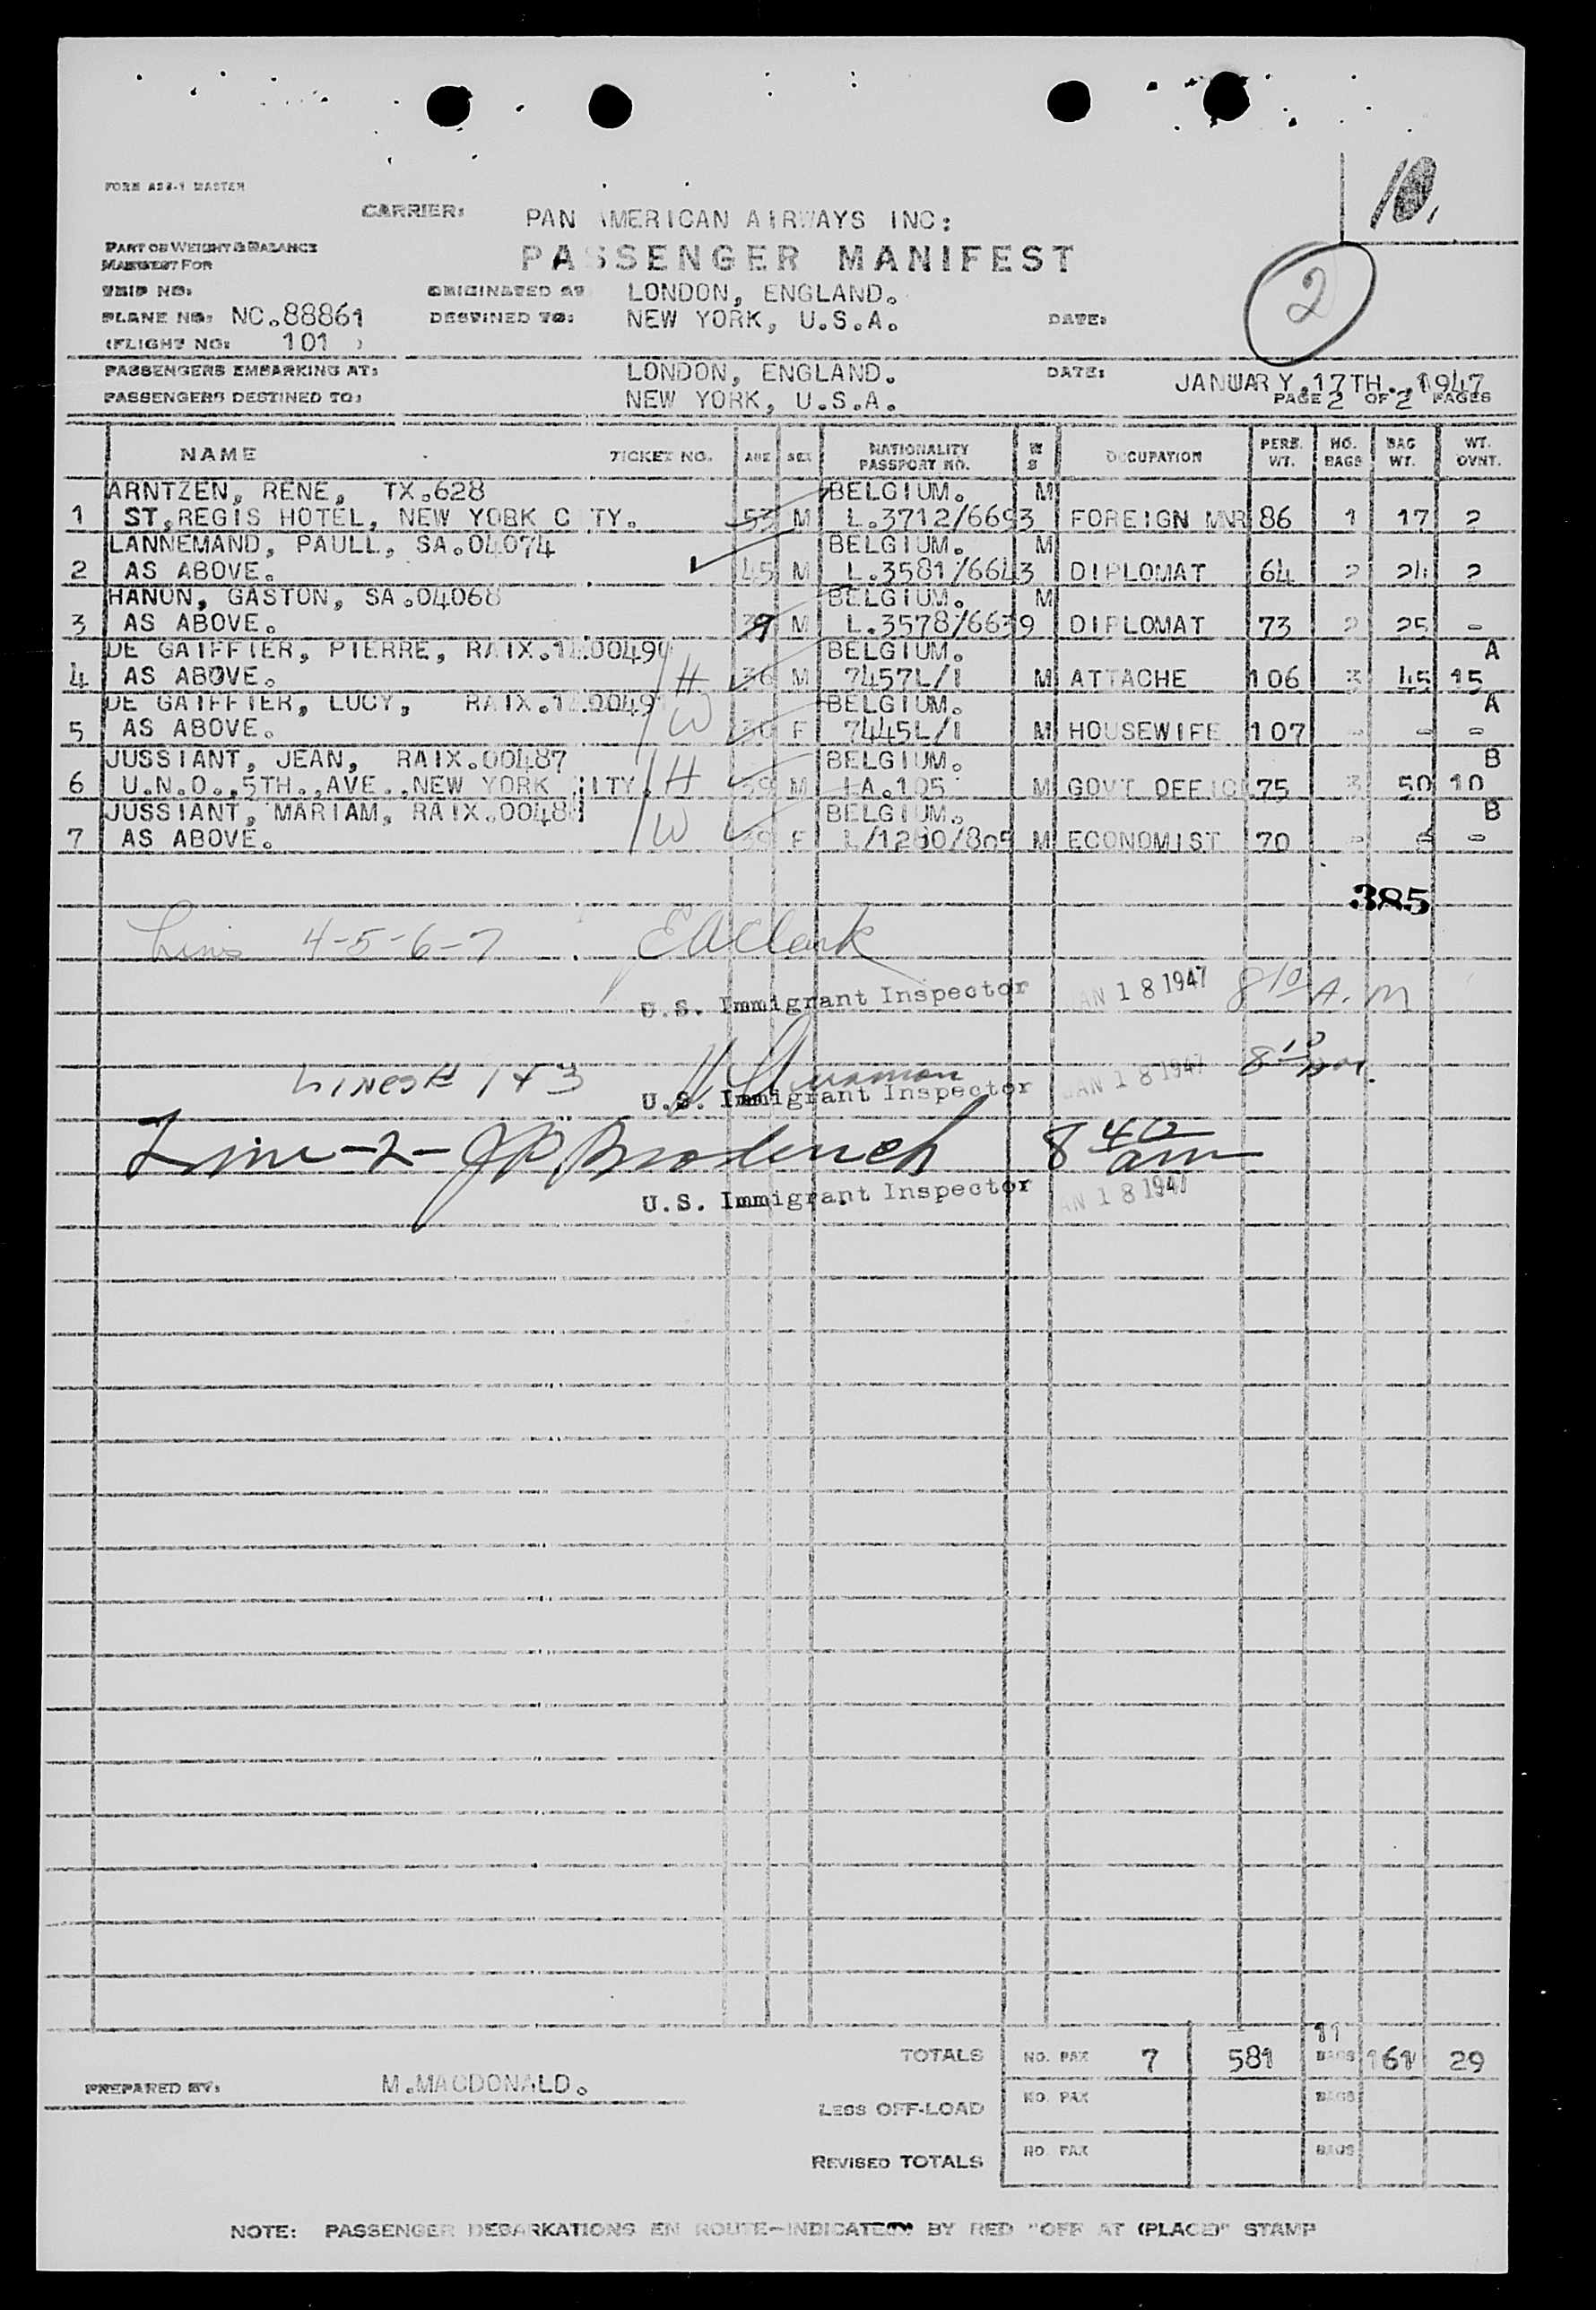 10.
FORM ASS-1 MASTER
CARRIER: PAN AMERICAN AIRWAYS INC:
PART OF WEIGHT & BALANCE
MANIFEST FOR
PASSENGER MANIFEST
2
TRIP NO: ORIGINATED AT LONDON, ENGLAND.
PLANE NO: NC.88861 DESTINED TO: NEW YORK, U.S.A. DATE:
(FLIGHT NO: 101 )
PASSENGERS EMBARKING AT: LONDON, ENGLAND. DATE: JANUARY.17TH.,1947
PASSENGERS DESTINED TO: NEW YORK, U.S.A. PAGE 2 OF 2 PAGES
NAME TICKET NO. AGE SEX NATIONALITY PASSPORT NO. M S OCCUPATION PERS. WT. NO. BAGS BAG WT. WT. OVWT.
ARNTZEN, RENE, TX.628 BELGIUM. M
1 ST.REGIS HOTEL, NEW YORK C TY. 53 M L.3712/6693 FOREIGN MNR 86 1 17 2
LANNEMAND, PAULL, SA.04074 BELGIUM. M
2 AS ABOVE. 45 M L.3581/6643 DIPLOMAT 64 2 24 2
HANON, GASTON, SA.04068 BELGIUM. M
3 AS ABOVE. M L.3578/6639 DIPLOMAT 73 2 25 -
DE GAIFFIER, PIERRE, RAIX. BELGIUM. A
4 AS ABOVE. H M 7457L/1 M ATTACHE 106 3 45 15
DE GAIFFIER, LUCY, RAIX. BELGIUM. A
5 AS ABOVE. W F 7445L/1 M HOUSEWIFE 107 - - -
JUSSIANT, JEAN, RAIX.00487 BELGIUM. B
6 U.N.O.,5TH.,AVE.,NEW YORK CITY. H 39 M LA.105 M GOVT OFFIC 75 3 50 10
JUSSIANT, MARIAM, RAIX.00488 BELGIUM. B
7 AS ABOVE. W 39 F L/1280/805 M ECONOMIST 70 - -
385
Lines 4-5-6-7 E A Clark
U.S. Immigrant Inspector JAN 18 1947 8 10 A.M
Lines# 1 + 3
U.S. Immigrant Inspector JAN 18 1947 8 10 am.
Line -2- J P Broderick 8 40 am
U.S. Immigrant Inspector JAN 18 1947
11
TOTALS NO. PAX 7 581 BAGS 161 29
PREPARED BY: M.MACDONALD.
LESS OFF-LOAD NO. PAX BAGS
REVISED TOTALS NO. PAX BAGS
NOTE: PASSENGER DEBARKATIONS EN ROUTE-INDICATED BY RED "OFF AT (PLACE)" STAMP